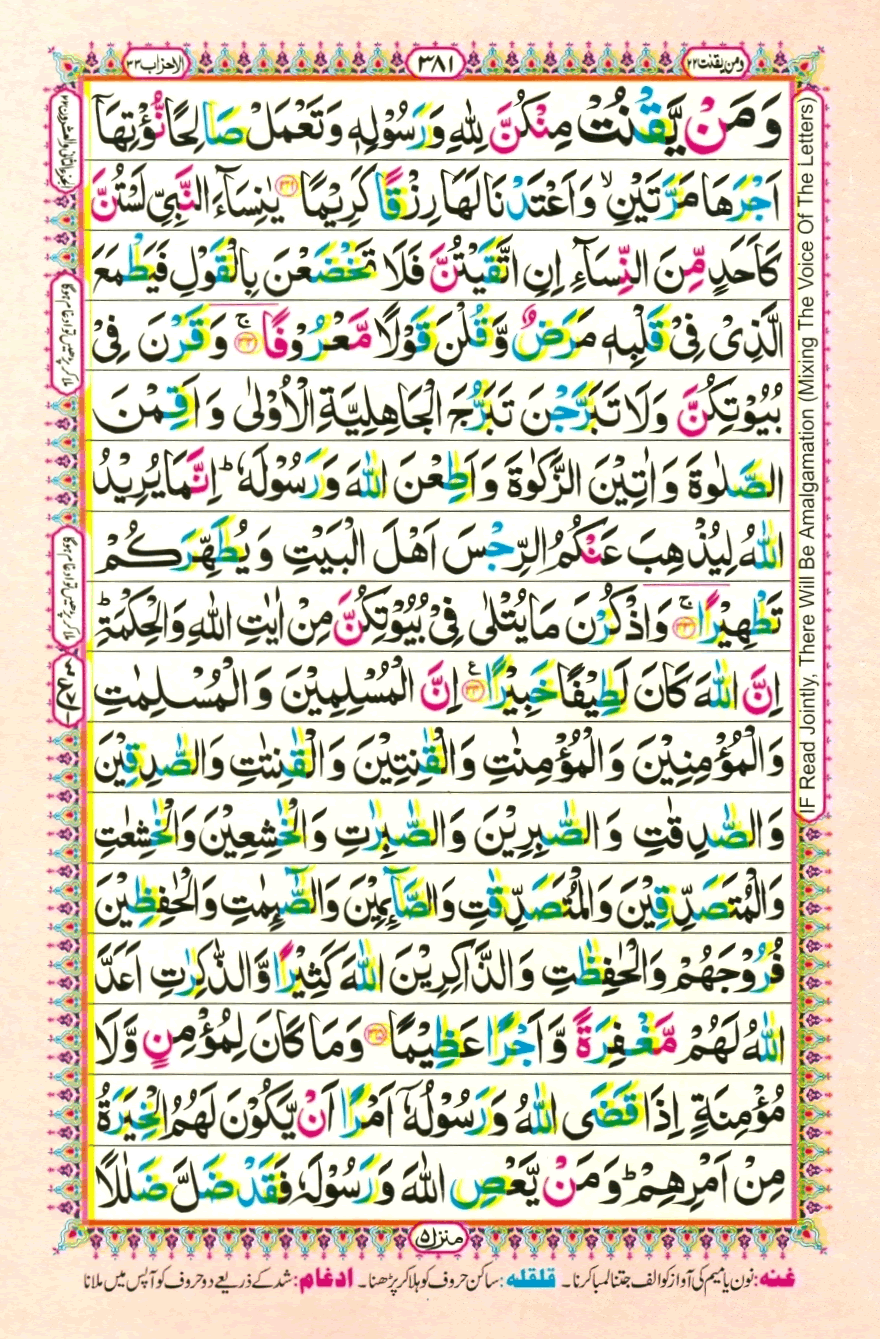 ومن یقنت ۲۲
۳۸۱
الاحزاب ۳۳
وَمَنْ يَّقْنُتْ مِنْكُنَّ لِلّٰهِ وَرَسُوْلِهٖ وَتَعْمَلْ صَالِحًا نُّؤْتِهَاۤ
اَجْرَهَا مَرَّتَيْنِ ۙ وَاَعْتَدْنَا لَهَا رِزْقًا كَرِيْمًا ﴿۳۱﴾ يٰنِسَآءَ النَّبِىِّ لَسْتُنَّ
كَاَحَدٍ مِّنَ النِّسَآءِ اِنِ اتَّقَيْتُنَّ فَلَا تَخْضَعْنَ بِالْقَوْلِ فَيَطْمَعَ
الَّذِىْ فِىْ قَلْبِهٖ مَرَضٌ وَّقُلْنَ قَوْلًا مَّعْرُوْفًا ۚ﴿۳۲﴾ وَقَرْنَ فِىْ
بُيُوْتِكُنَّ وَلَا تَبَرَّجْنَ تَبَرُّجَ الْجَاهِلِيَّةِ الْاُوْلٰى وَاَقِمْنَ
الصَّلٰوةَ وَاٰتِيْنَ الزَّكٰوةَ وَاَطِعْنَ اللّٰهَ وَرَسُوْلَهٗ ؕ اِنَّمَا يُرِيْدُ
اللّٰهُ لِيُذْهِبَ عَنْكُمُ الرِّجْسَ اَهْلَ الْبَيْتِ وَيُطَهِّرَكُمْ
تَطْهِيْرًا ۚ﴿۳۳﴾ وَاذْكُرْنَ مَا يُتْلٰى فِىْ بُيُوْتِكُنَّ مِنْ اٰيٰتِ اللّٰهِ وَالْحِكْمَةِ ؕ
اِنَّ اللّٰهَ كَانَ لَطِيْفًا خَبِيْرًا ﴿۳۴﴾ اِنَّ الْمُسْلِمِيْنَ وَالْمُسْلِمٰتِ
وَالْمُؤْمِنِيْنَ وَالْمُؤْمِنٰتِ وَالْقٰنِتِيْنَ وَالْقٰنِتٰتِ وَالصّٰدِقِيْنَ
وَالصّٰدِقٰتِ وَالصّٰبِرِيْنَ وَالصّٰبِرٰتِ وَالْخٰشِعِيْنَ وَالْخٰشِعٰتِ
وَالْمُتَصَدِّقِيْنَ وَالْمُتَصَدِّقٰتِ وَالصَّآئِمِيْنَ وَالصّٰٓئِمٰتِ وَالْحٰفِظِيْنَ
فُرُوْجَهُمْ وَالْحٰفِظٰتِ وَالذَّاكِرِيْنَ اللّٰهَ كَثِيْرًا وَّالذّٰكِرٰتِ اَعَدَّ
اللّٰهُ لَهُمْ مَّغْفِرَةً وَّاَجْرًا عَظِيْمًا ﴿۳۵﴾ وَمَا كَانَ لِمُؤْمِنٍ وَّلَا
مُؤْمِنَةٍ اِذَا قَضَى اللّٰهُ وَرَسُوْلُهٗۤ اَمْرًا اَنْ يَّكُوْنَ لَهُمُ الْخِيَرَةُ
مِنْ اَمْرِهِمْ ؕ وَمَنْ يَّعْصِ اللّٰهَ وَرَسُوْلَهٗ فَقَدْ ضَلَّ ضَلٰلًا
IF Read Jointly, There Will Be Amalgamation (Mixing The Voice Of The Letters)
ملا کر پڑھیں تو ادغام ہوگا
ملا کر پڑھیں تو ادغام ہوگا
منزل ۵
غنہ: نون یا میم کی آواز کو الف جتنا لمبا کرنا۔ قلقلہ: ساکن حروف کو ہلا کر پڑھنا۔ ادغام: شد کے ذریعے دو حروف کو آپس میں ملانا